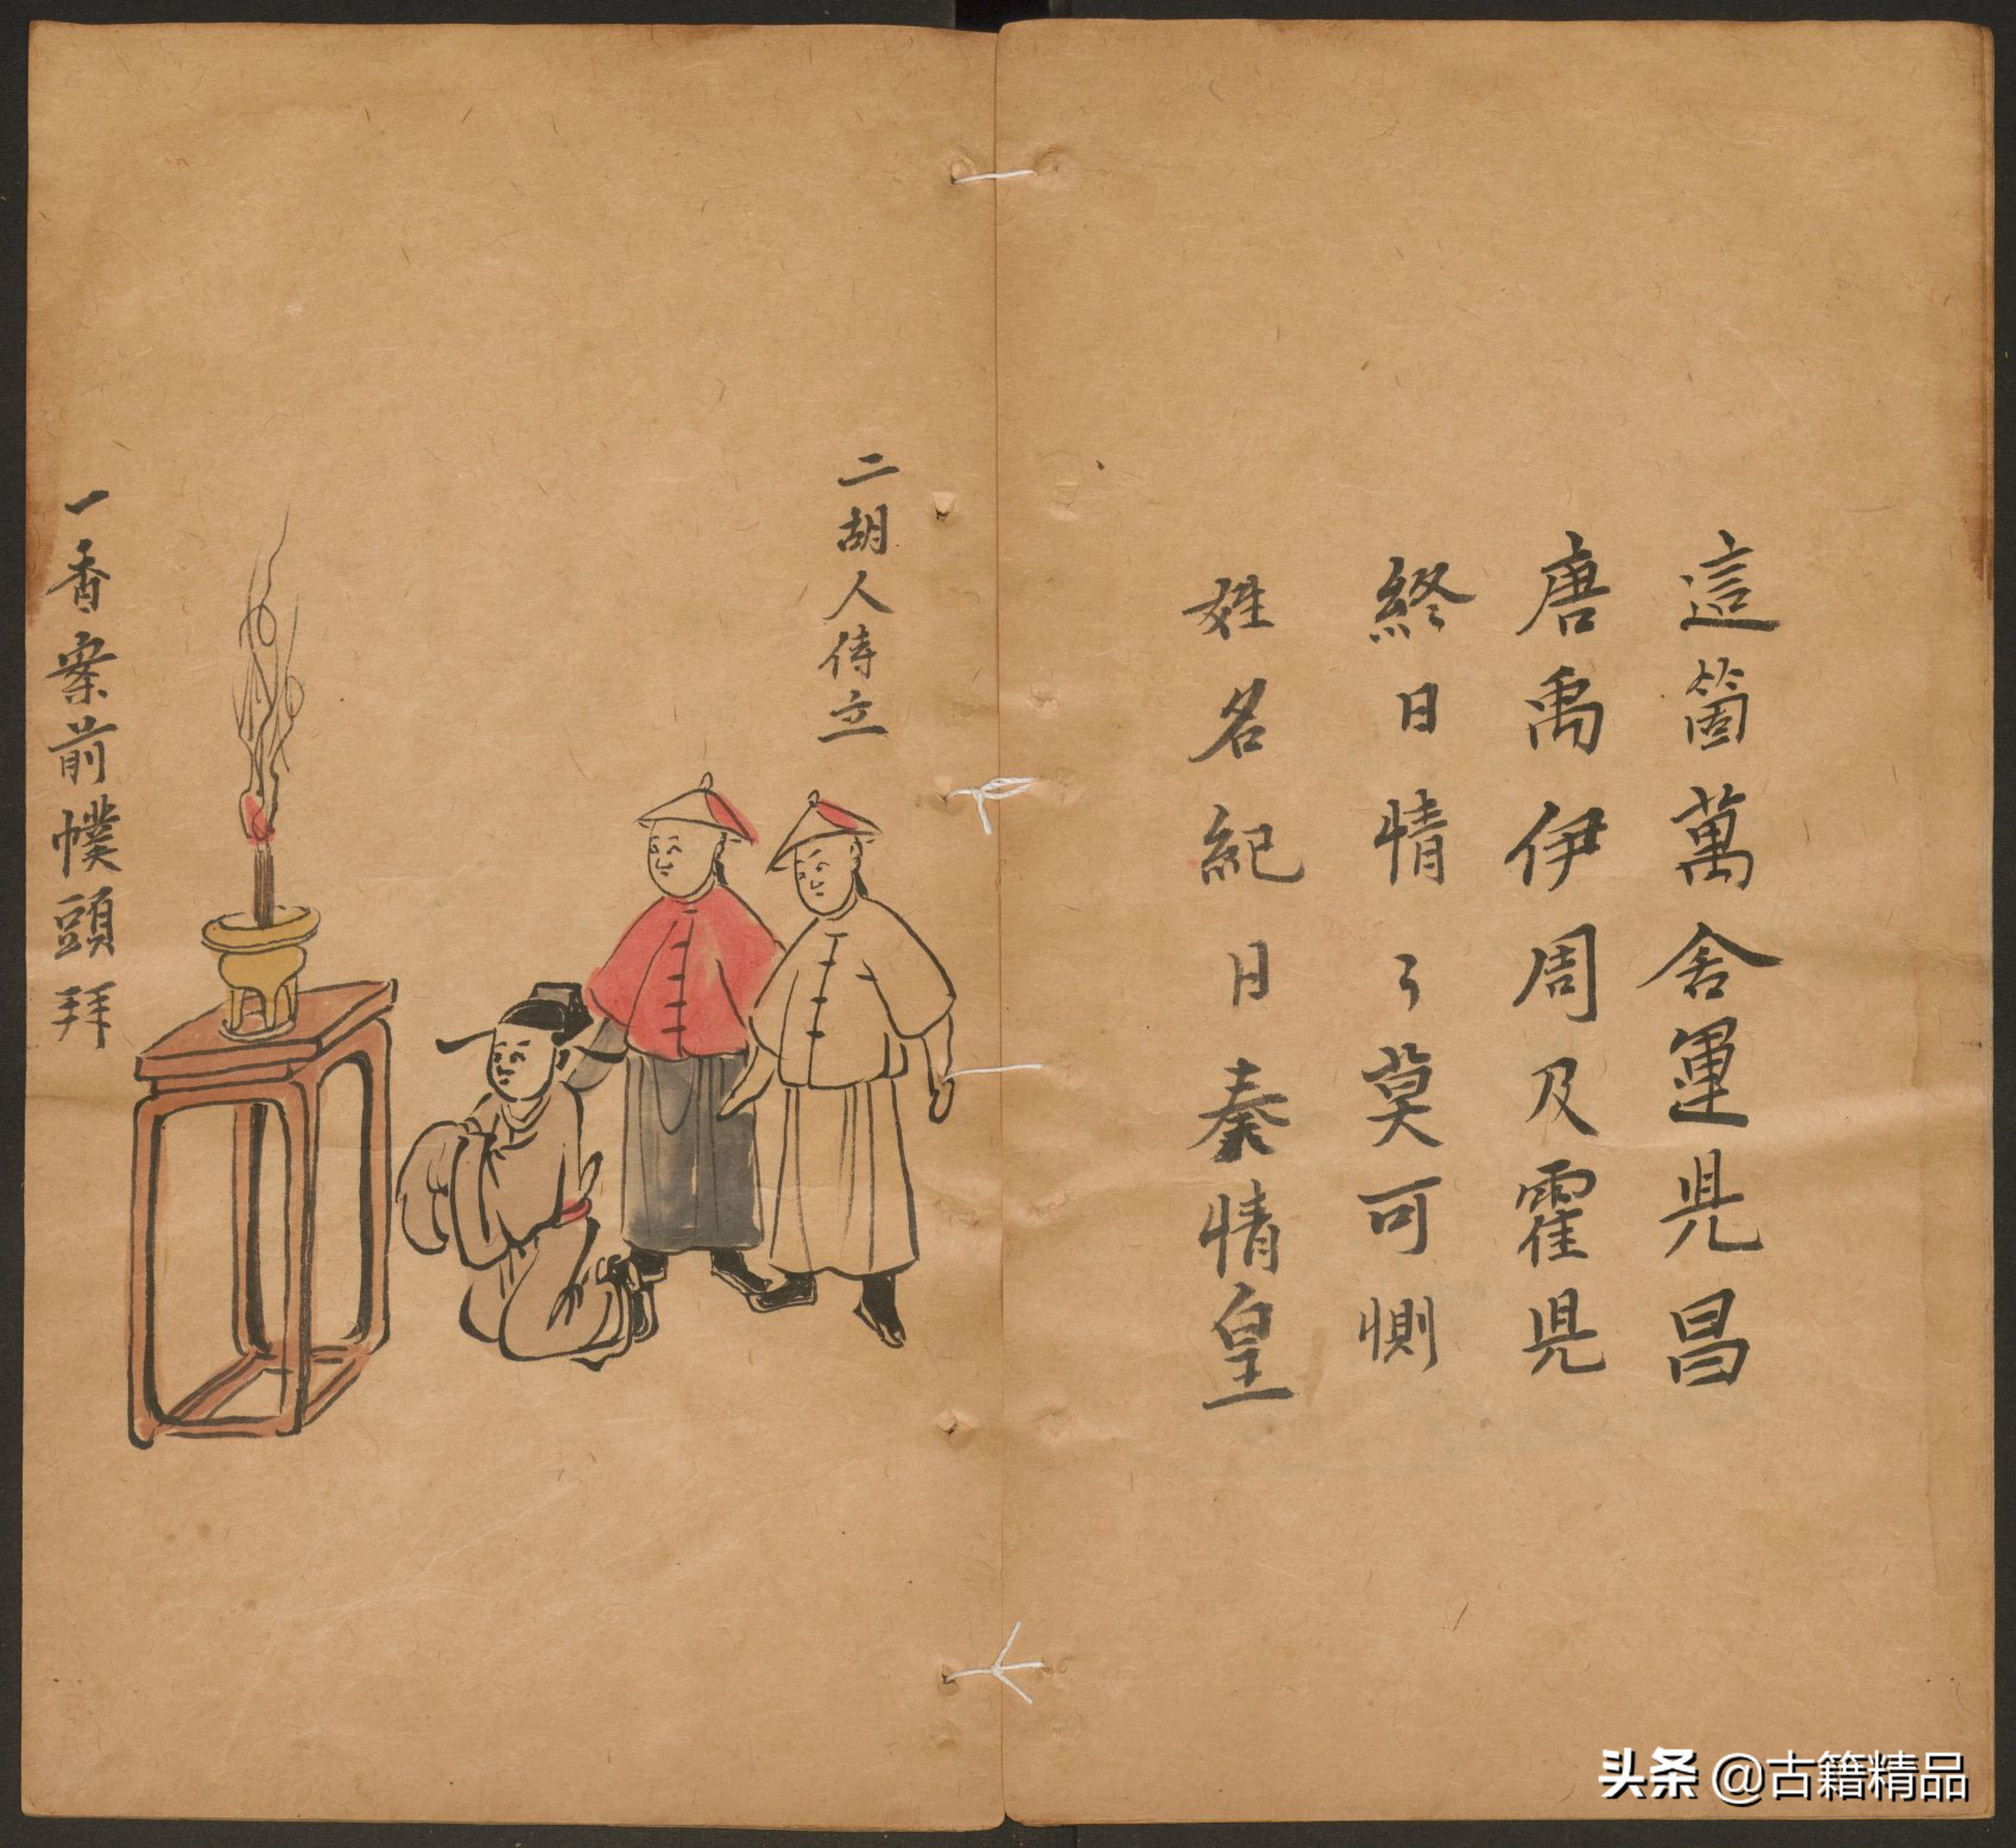 這箇萬舍運見昌
唐禹伊周及霍見
終日情了莫可惻
姓名紀日秦情皇
二胡人侍立
一香案前幞頭拜
头条 @古籍精品